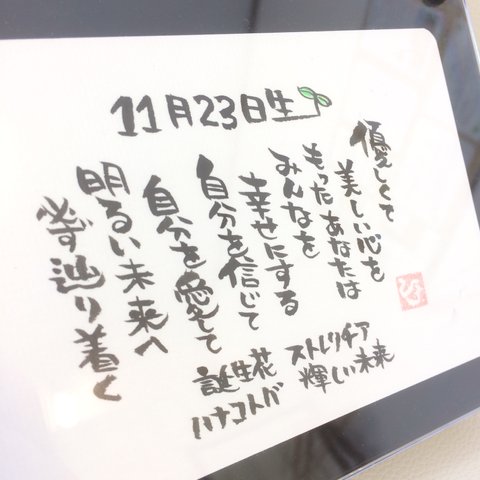 11月23日生
優しくて
美しい心を
もったあなたは
みんなを
幸せにする
自分を信じて
自分を愛して
明るい未来へ
必ず辿り着く
誕生花 ストレリチア
ハナコトバ 輝しい未来